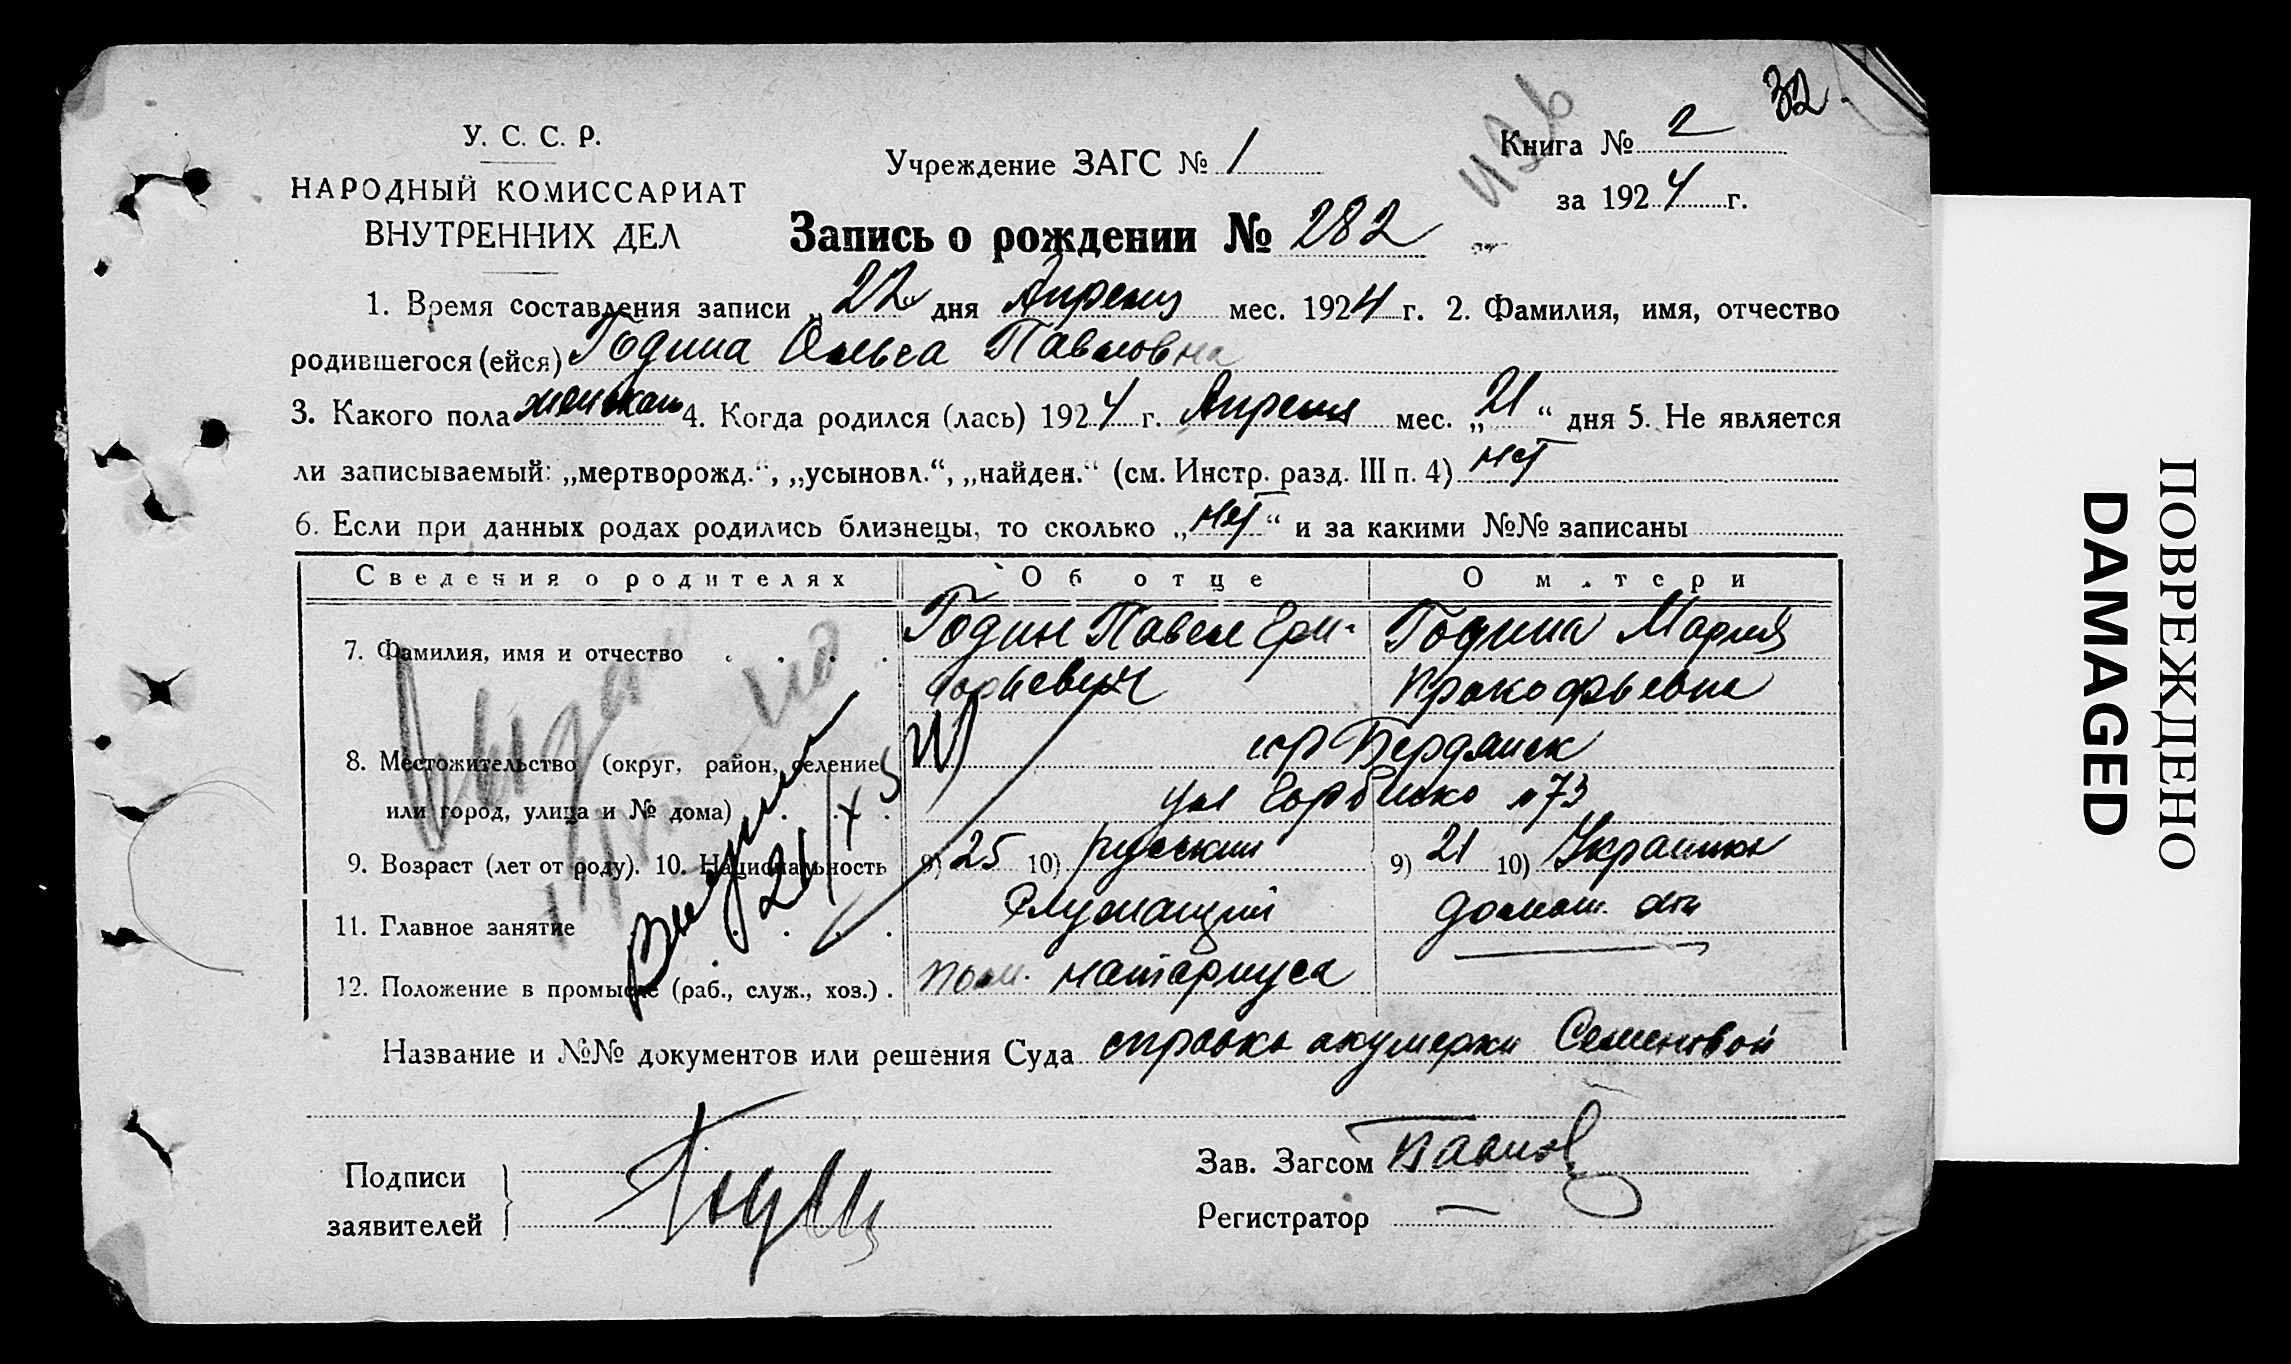 32
У. С. С. Р.
НАРОДНЫЙ КОМИССАРИАТ
ВНУТРЕННИХ ДЕЛ
Учреждение ЗАГС № 1
Книга № 2
за 1924 г.
Запись о рождении № 282
1. Время составления записи „ 22 дня Апреля мес. 1924 г. 2. Фамилия, имя, отчество
родившегося (ейся) Година Ольга Павловна
3. Какого пола женскаго 4. Когда родился (лась) 1924 г. Апреля мес. „21“ дня 5. Не является
ли записываемый: „мертворожд.“, „усыновл.“, „найден.“ (см. Инстр. разд. III п. 4) нет
6. Если при данных родах родились близнецы, то сколько „нет“ и за какими №№ записаны
Сведения о родителях Об отце О м.тери
7. Фамилия, имя и отчество Годин Павел Гри- Година Мария
горьевич Прокофьевна
8. Местожительство (округ, район, селение гр Бердянск
или город, улица и № дома) ул Горбенко №73
9. Возраст (лет от роду). 10. Национальность 9) 25 10) русский 9) 21 10) Украинка
11. Главное занятие Служащий домаш. хоз
12. Положение в промысле (раб., служ., хоз.) пом. натариуса
Выдан
21/X
Название и №№ документов или решения Суда справка акушерки Семеновой
Подписи
заявителей
Годин
Зав. Загсом
Регистратор —
ПОВРЕЖДЕНО
DAMAGED